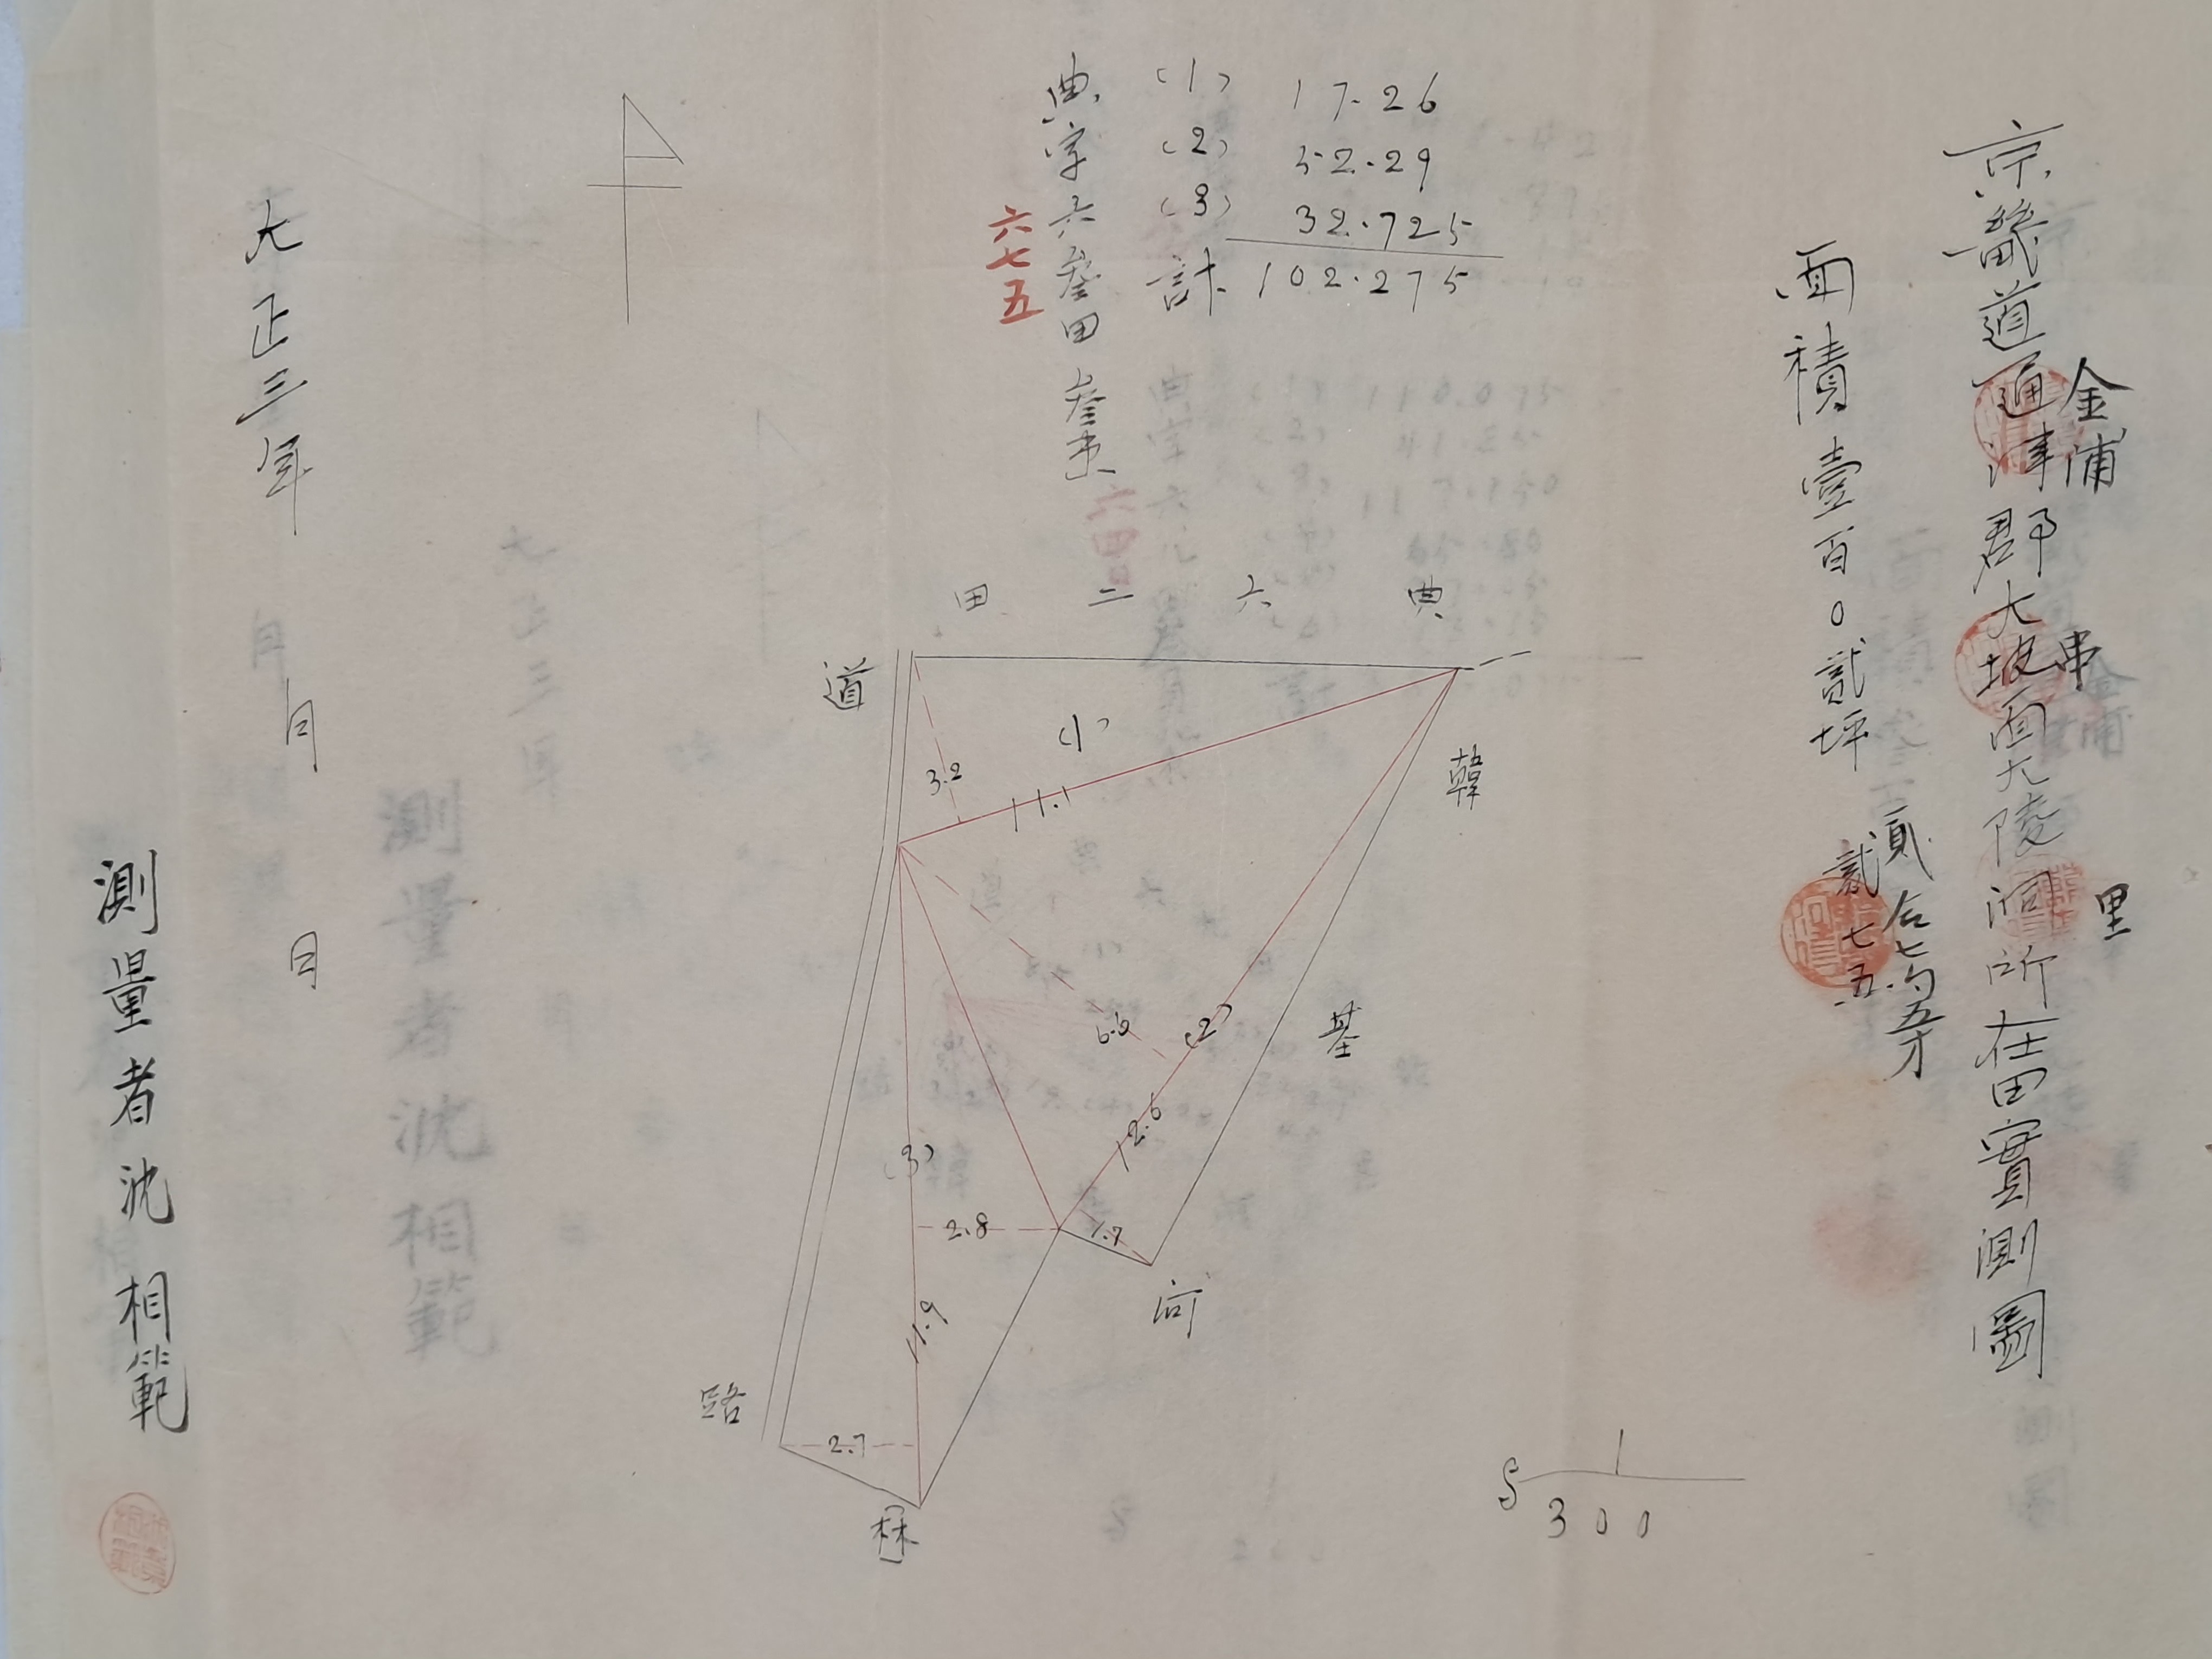 京畿道通津郡大坡面大陵洞所在田實測圖
金浦
串
里
面積壹百0貳坪
貳合七勺五才
貳七五
(1) 17.26
(2) 52.29
(3) 32.725
計 102.275
典字六叄田叄束
六七五
典六二田
道
路
韓
基
(1)
3.2
11.1
(2)
6.6
12.6
1.7
(3)
2.8
11.9
2.7
S 1
300
大正三年 月 日
測量者 沈相範